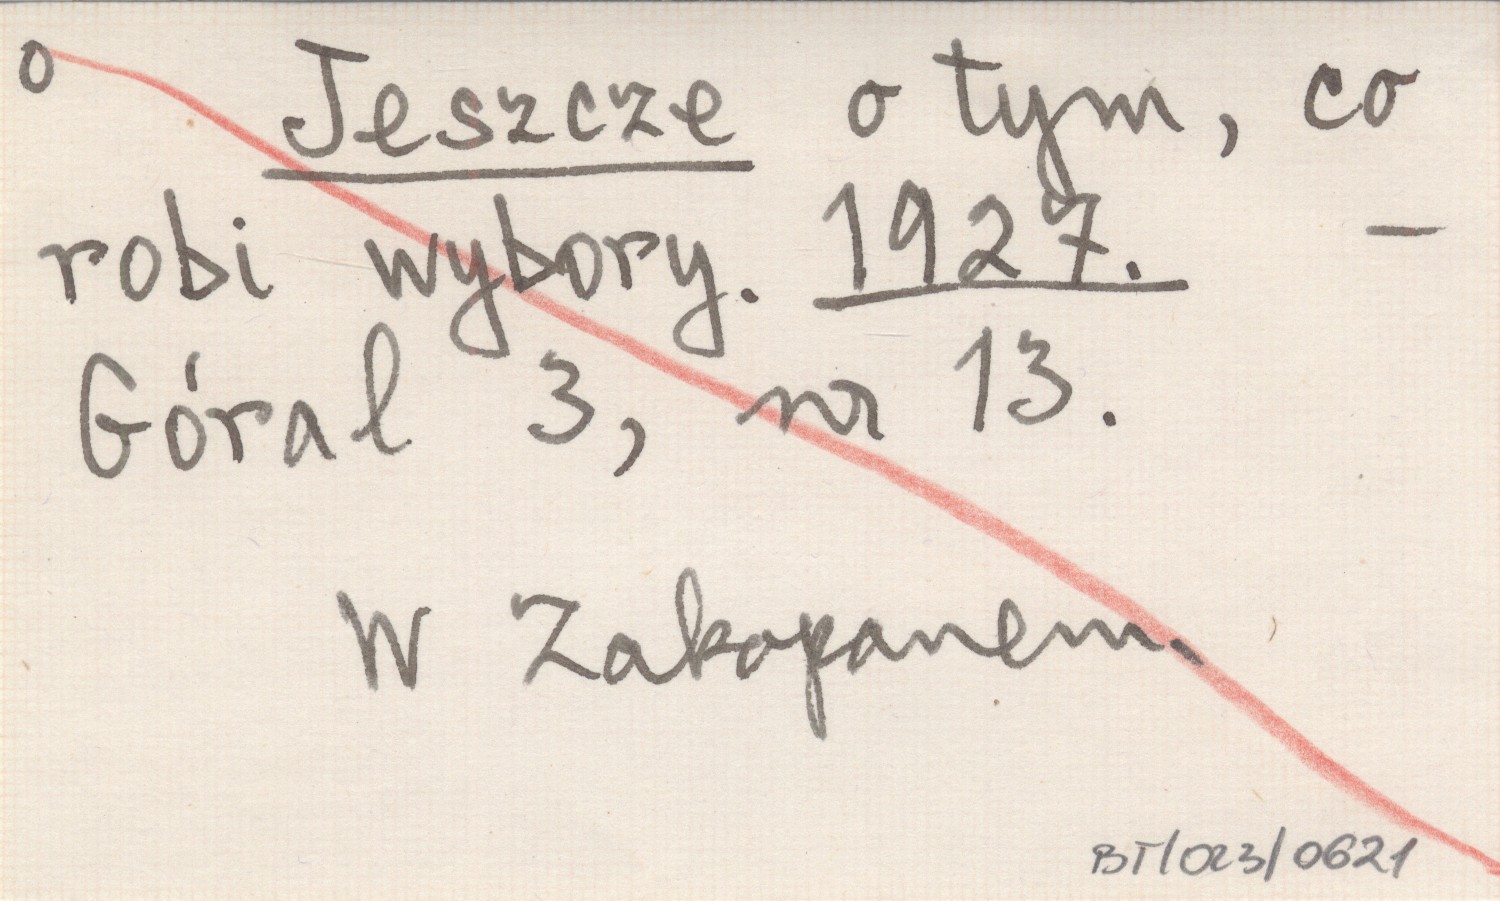 o Jeszcze o tym, co
robi wybory. 1927. -
Góral 3, nr 13.
W Zakopanem.
BT/023/0621